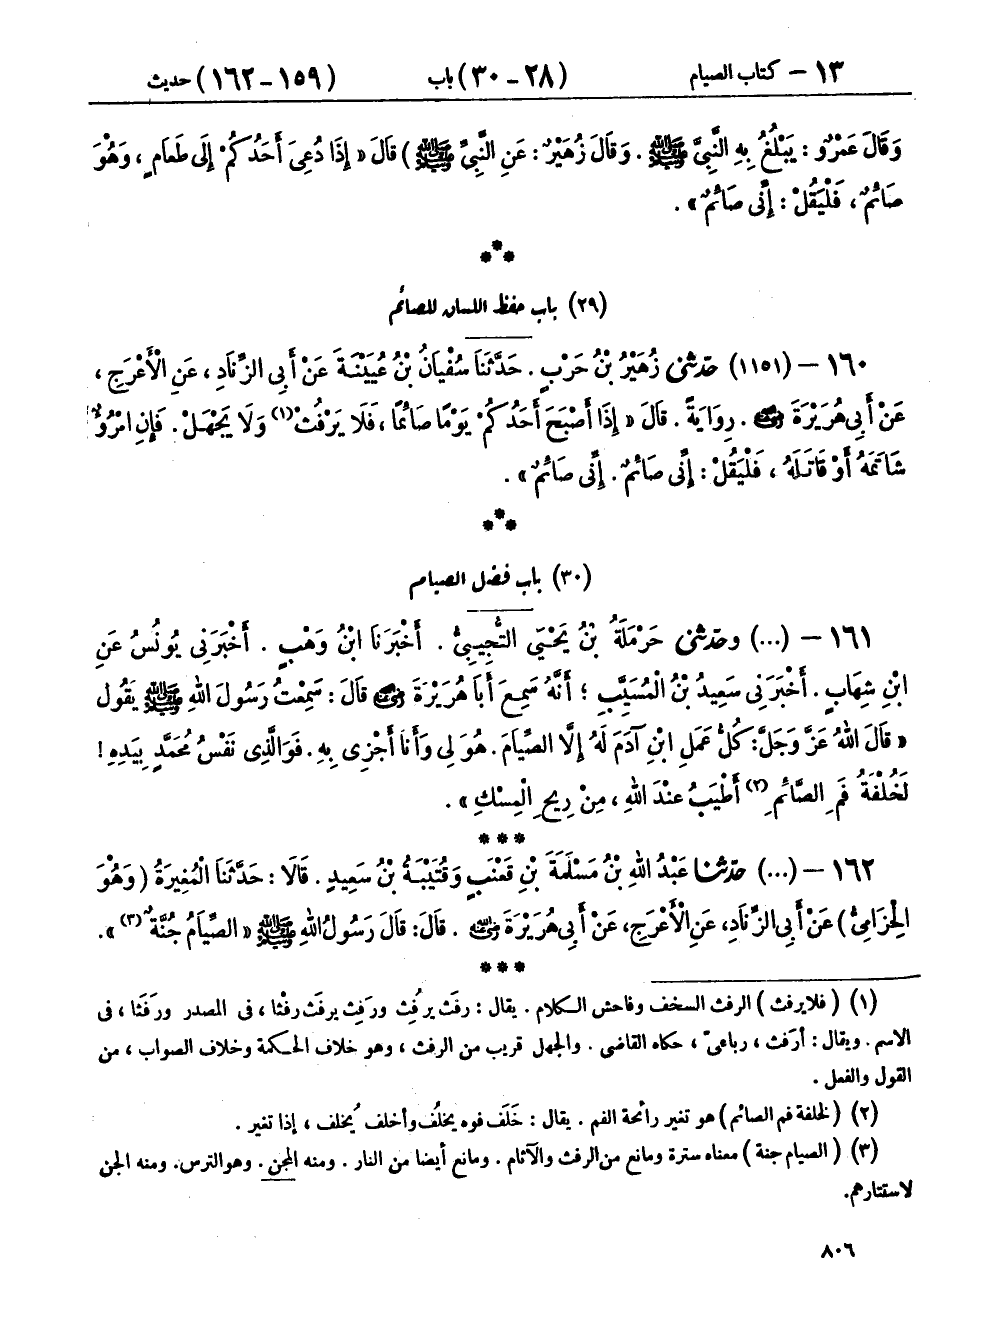 ١٣ – كتاب الصيام (٢٨ – ٣٠) باب (١٥٩ – ١٦٢) حديث
وَقَالَ عَمْرٌو : يَبْلُغُ بِهِ النَّبِيَّ ﷺ . وَقَالَ زُهَيْرٌ : عَنِ النَّبِيِّ ﷺ ) قَالَ « إِذَا دُعِيَ أَحَدُكُمْ إِلَى طَعَامٍ ، وَهُوَ
صَائمٌ ، فَلْيَقُلْ : إِنِّي صَائمٌ » .
***
(٢٩) باب حفظ اللسان للصائم
١٦٠ – (١١٥١) حدّثني زُهَيْرُ بْنُ حَرْبٍ . حَدَّثَنَا سُفْيَانُ بْنُ عُيَيْنَةَ عَنْ أَبِي الزِّنَادِ ، عَنِ الْأَعْرَجِ ،
عَنْ أَبِي هُرَيْرَةَ رضي الله عنه . رِوَايَةً . قَالَ « إِذَا أَصْبَحَ أَحَدُكُمْ يَوْمًا صَائمًا ، فَلَا يَرْفُثْ (١) وَلَا يَجْهَلْ . فَإِنِ امْرُؤٌ
شَاتَمَهُ أَوْ قَاتَلَهُ ، فَلْيَقُلْ : إِنِّي صَائمٌ . إِنِّي صَائمٌ » .
***
(٣٠) باب فضل الصيام
١٦١ – (...) وحدّثني حَرْمَلَةُ بْنُ يَحْيَى التُّجِيبِيُّ . أَخْبَرَنَا ابْنُ وَهْبٍ . أَخْبَرَنِي يُونُسُ عَنِ
ابْنِ شِهَابٍ . أَخْبَرَنِي سَعِيدُ بْنُ الْمُسَيَّبِ ؛ أَنَّهُ سَمِعَ أَبَا هُرَيْرَةَ رضي الله عنه قَالَ : سَمِعْتُ رَسُولَ اللهِ ﷺ يَقُول
« قَالَ اللهُ عَزَّ وَجَلَّ : كُلُّ عَمَلِ ابْنِ آدَمَ لَهُ إِلَّا الصِّيَامَ . هُوَ لِي وَأَنَا أَجْزِي بِهِ . فَوَالَّذِي نَفْسُ مُحَمَّدٍ بِيَدِهِ !
لَخُلْفَةُ فَمِ الصَّائمِ (٢) أَطْيَبُ عِنْدَ اللهِ ، مِنْ رِيحِ الْمِسْكِ » .
***
١٦٢ – (...) حدّثنا عَبْدُ اللهِ بْنُ مَسْلَمَةَ بْنِ قَعْنَبٍ وَقُتَيْبَةُ بْنُ سَعِيدٍ . قَالَا : حَدَّثَنَا الْمُغِيرَةُ ( وَهُوَ
الْحِزَامِيُّ ) عَنْ أَبِي الزِّنَادِ ، عَنِ الْأَعْرَجِ ، عَنْ أَبِي هُرَيْرَةَ رضي الله عنه . قَالَ : قَالَ رَسُولُ اللهِ ﷺ « الصِّيَامُ جُنَّةٌ (٣) » .
***
(١) ( فلا يرفث ) الرفث السخف وفاحش الكلام . يقال : رفَث يرفُث ورفِث يرفَث رفْثا ، فى المصدر ورفَثا ، فى
الاسم . ويقال : أرفث ، رباعىّ ، حكاه القاضى . والجهل قريب من الرفث ، وهو خلاف الحكمة وخلاف الصواب ، من
القول والفعل .
(٢) ( لخلفة فم الصائم ) هو تغير رائحة الفم . يقال : خَلَف فوه يخلُف وأخلف يُخلف ، إذا تغير .
(٣) ( الصيام جنة ) معناه سترة ومانع من الرفث والآثام . ومانع أيضا من النار . ومنه المجن . وهو الترس . ومنه الجن
لاستتارهم .
٨٠٦